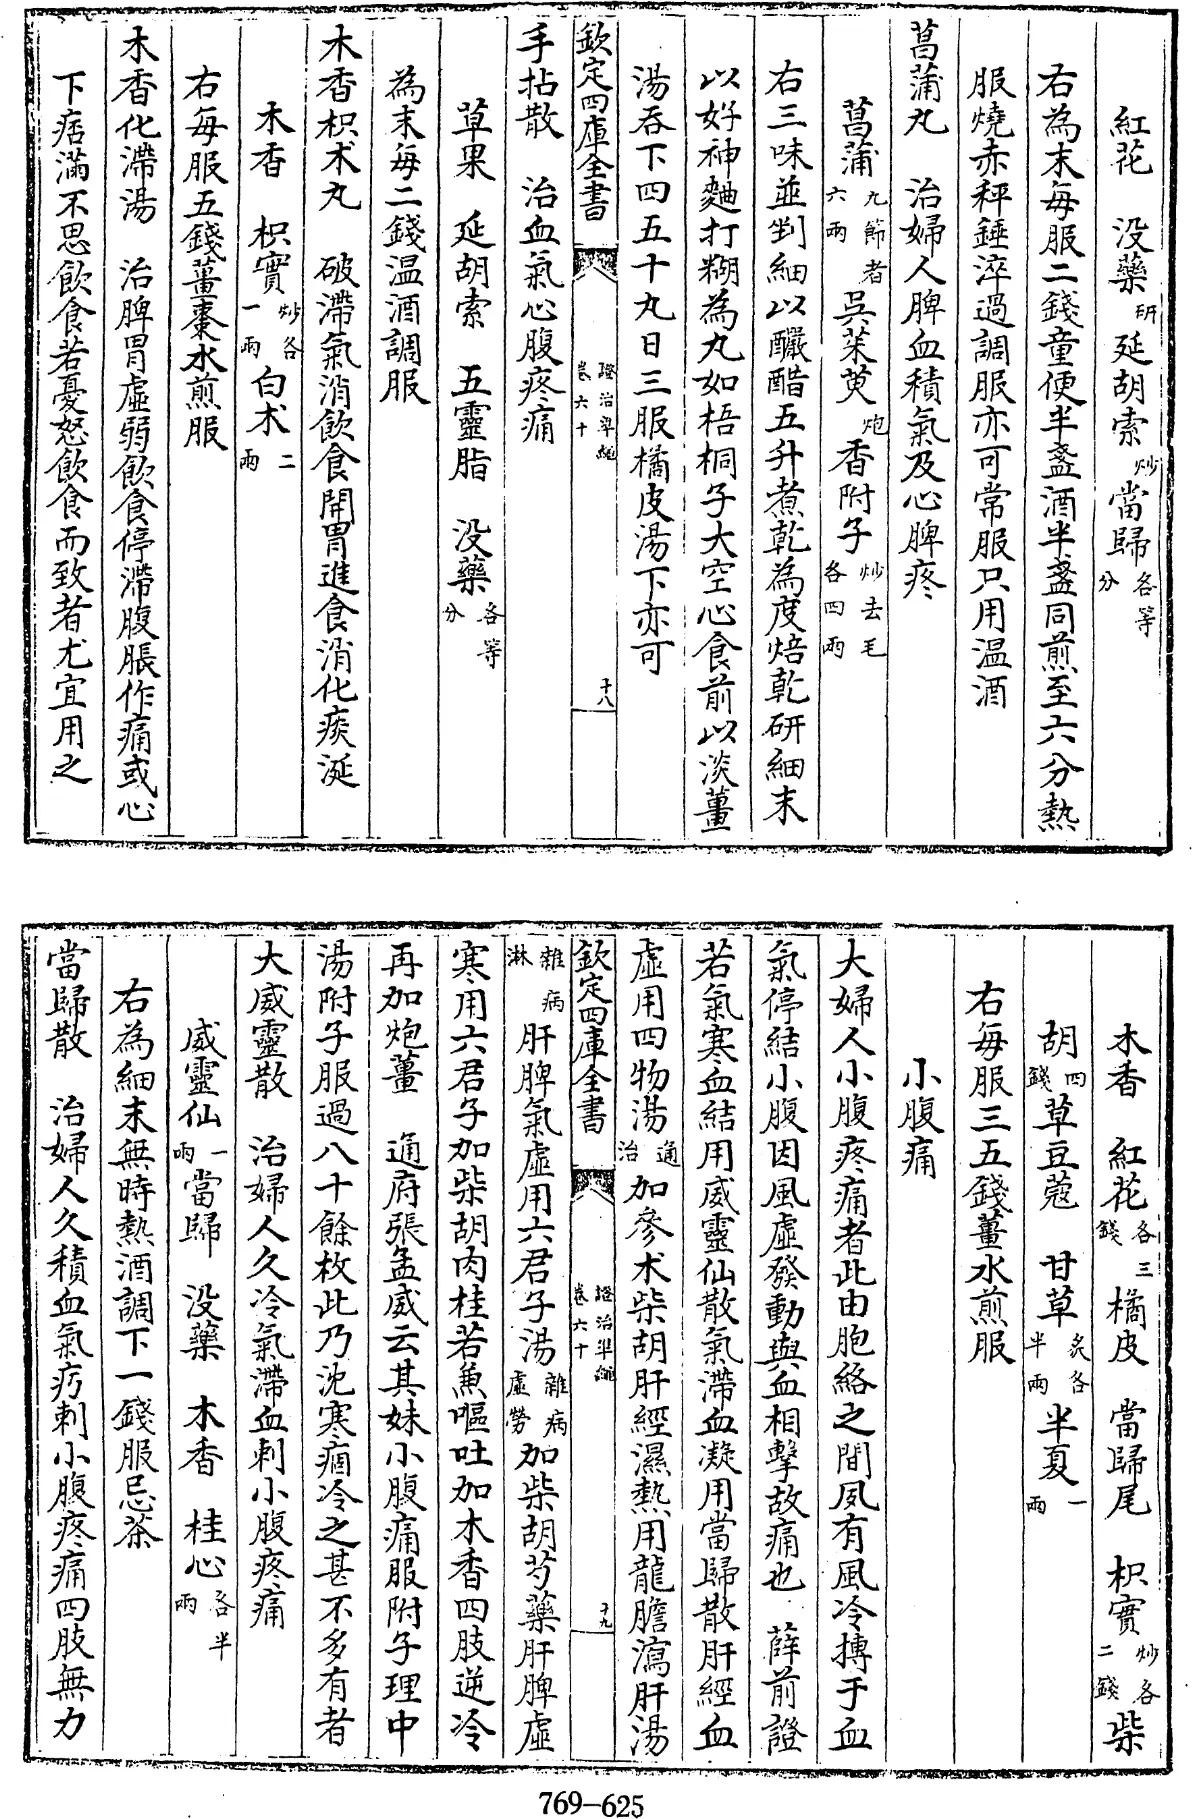 紅花　没藥研延胡索炒當歸各等分
右為末每服二錢童便半盞酒半盞同煎至六分熱
服燒赤秤錘淬過調服亦可常服只用温酒
菖蒲丸　治婦人脾血積氣及心脾疼
菖蒲九節者六兩吳茱萸炮香附子炒去毛各四兩
右三味並剉細以釅醋五升煮乾為度焙乾研細末
以好神麯打糊為丸如梧桐子大空心食前以淡薑
湯吞下四五十丸日三服橘皮湯下亦可
欽定四庫全書　證治準繩卷六十　十八
手拈散　治血氣心腹疼痛
草果　延胡索　五靈脂　没藥各等分
為末每二錢温酒調服
木香枳术丸　破滯氣消飲食開胃進食消化痰涎
木香　枳實炒各一兩白术二兩
右每服五錢薑棗水煎服
木香化滯湯　治脾胃虛弱飲食停滯腹脹作痛或心
下痞滿不思飲食若憂怒飲食而致者尤宜用之
木香　紅花各三錢橘皮　當歸尾　枳實炒各二錢柴
胡四錢草豆蔻　甘草炙各半兩半夏一兩
右每服三五錢薑水煎服
小腹痛
大婦人小腹疼痛者此由胞絡之間夙有風冷搏于血
氣停結小腹因風虛發動與血相擊故痛也　薛前證
若氣寒血結用威靈仙散氣滯血凝用當歸散肝經血
虛用四物湯通治加參术柴胡肝經濕熱用龍膽瀉肝湯
欽定四庫全書　證治準繩卷六十　十九
雜病淋肝脾氣虛用六君子湯雜病虛勞加柴胡芍藥肝脾虛
寒用六君子加柴胡肉桂若兼嘔吐加木香四肢逆冷
再加炮薑　通府張孟威云其妹小腹痛服附子理中
湯附子服過八十餘枚此乃沈寒痼冷之甚不多有者
大威靈散　治婦人久冷氣滯血刺小腹疼痛
威靈仙一兩當歸　没藥　木香　桂心各半兩
右為細末無時熱酒調下一錢服忌茶
當歸散　治婦人久積血氣疞刺小腹疼痛四肢無力
769-625